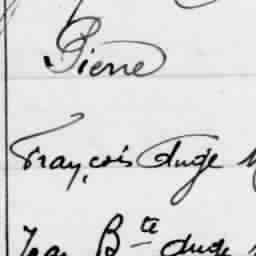 Pierre
François Dugé
Jean Bte dugé